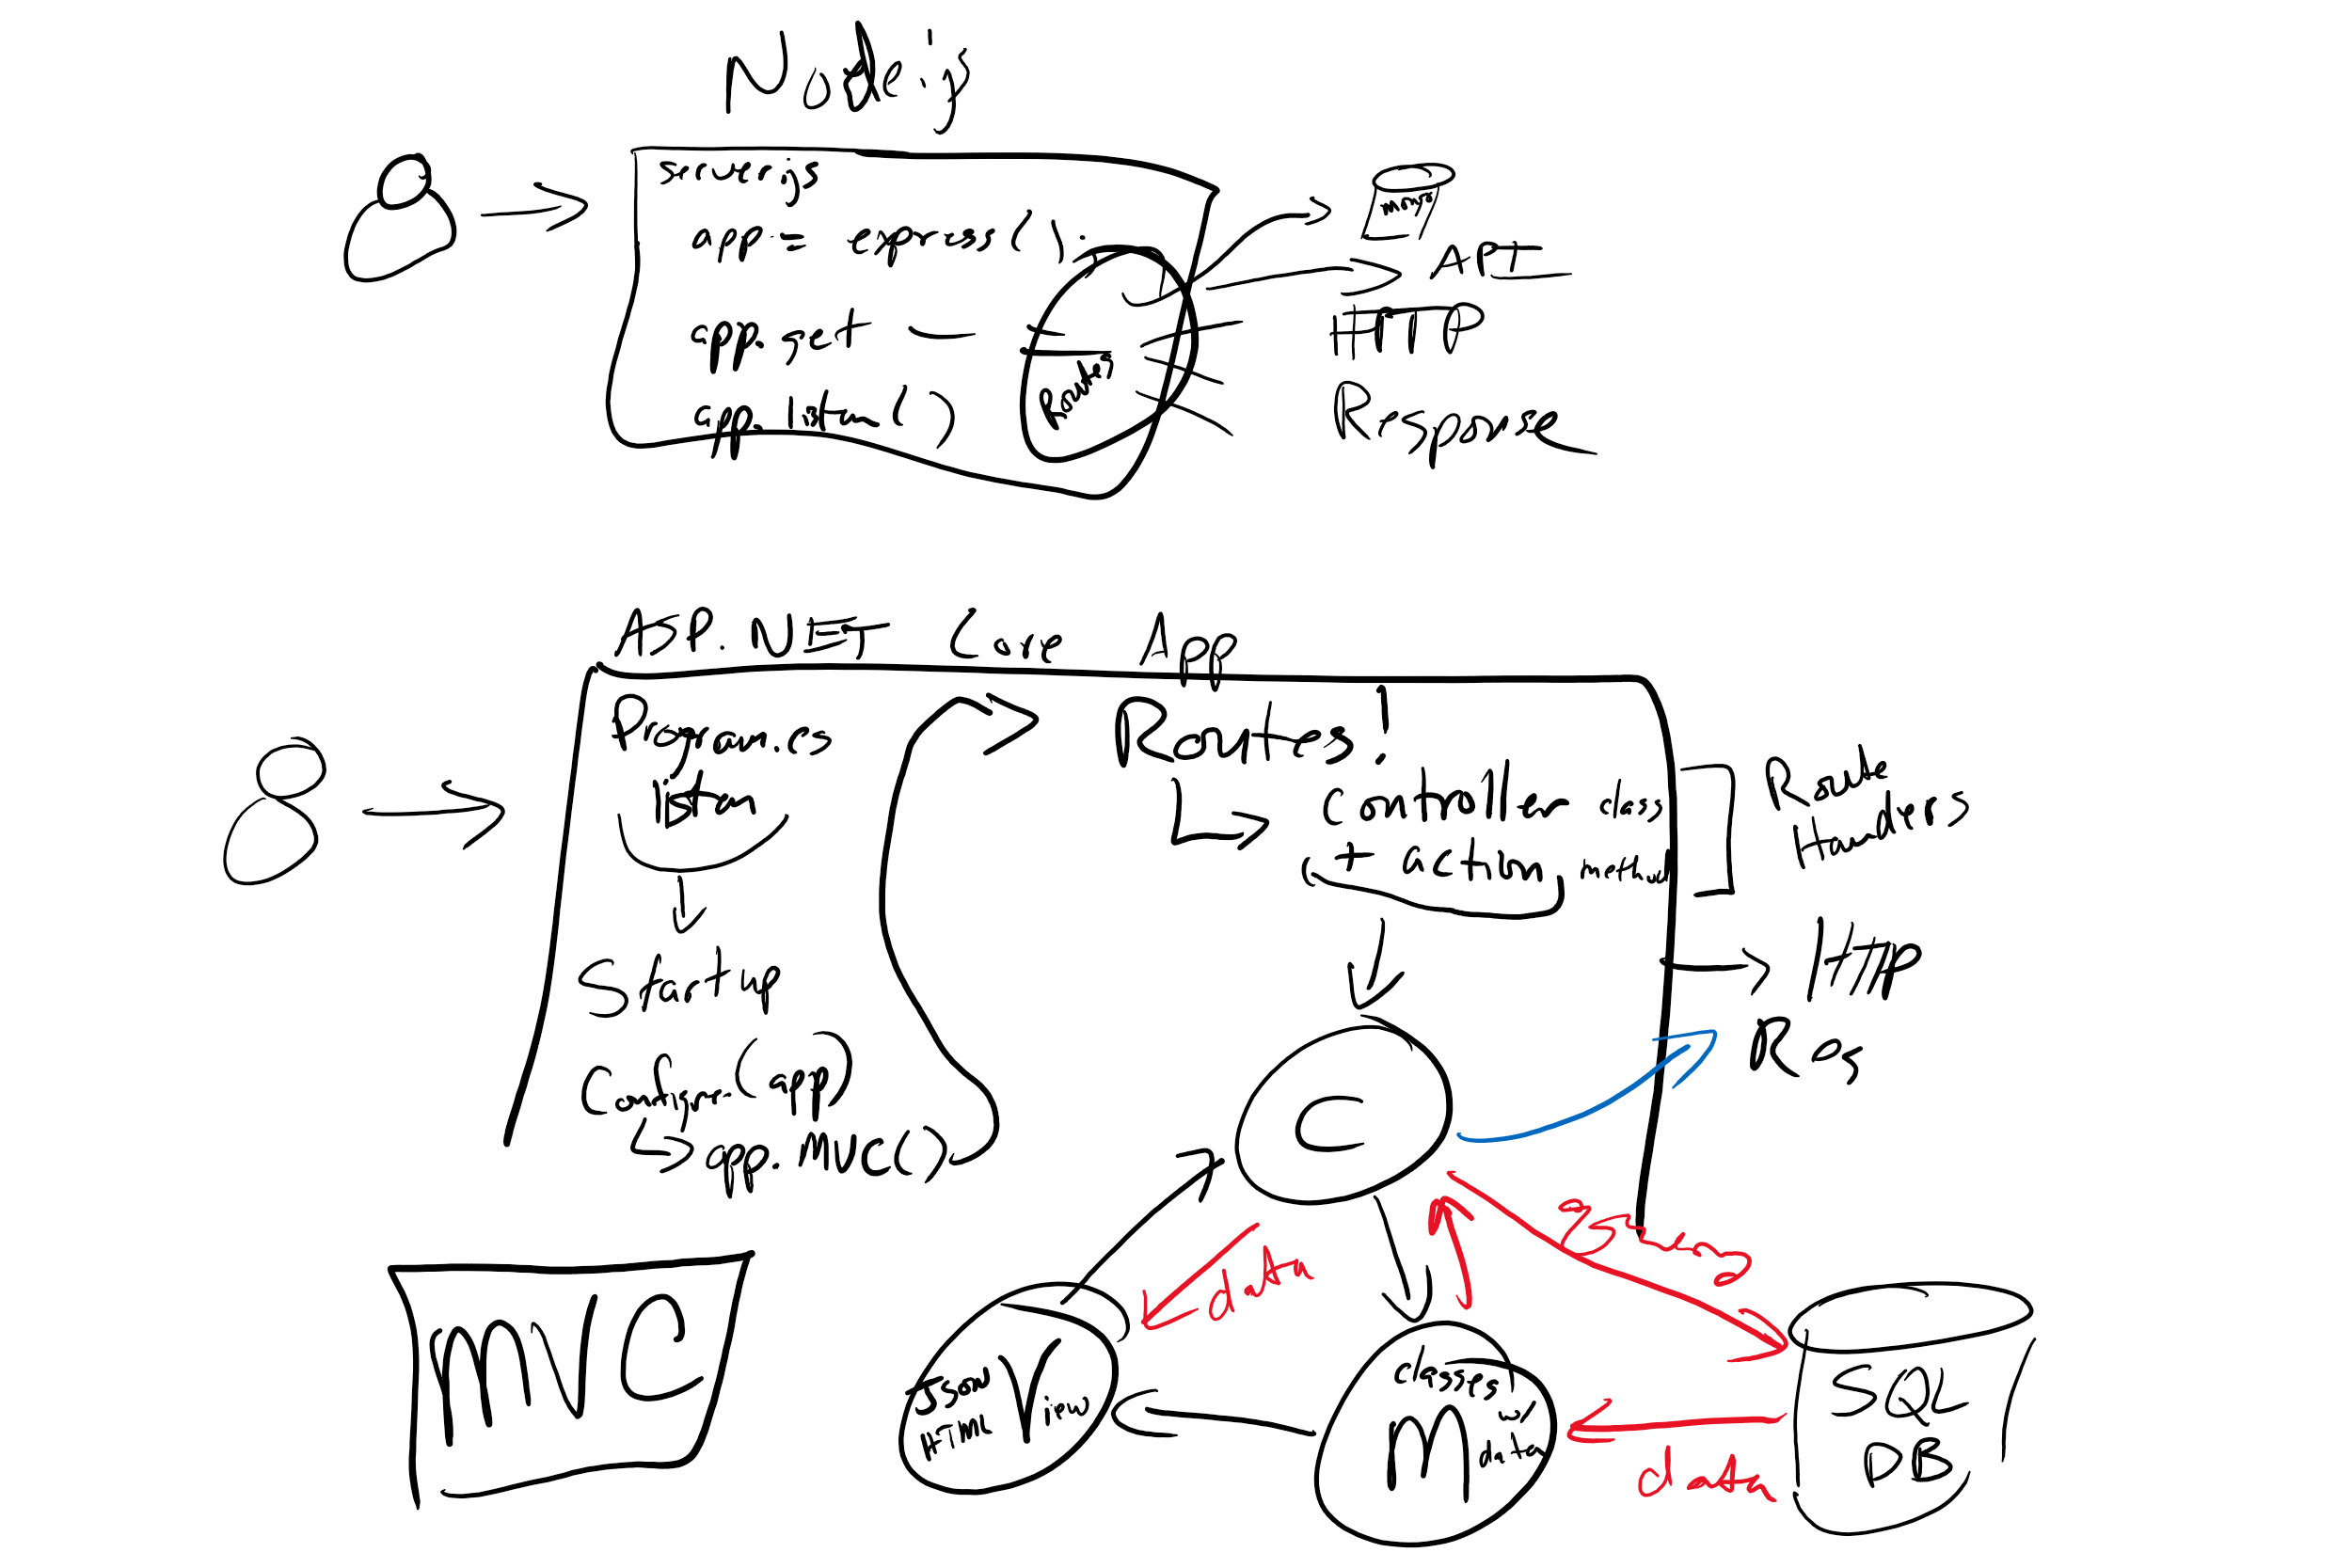 Node.js
server.js
app = express();
app.get — —
app.listen()
Routes
mongo
API
HTTP
Response
ASP.NET Core App
Program.cs
listen
Startup
Configure(app)
app.MVC()
Routes!
Controller class
+ action method
Route
Handlers
HTTP
Res
C
data
JSON
HTML
View
classes
w/
M
data
data
SQL
DB
MVC